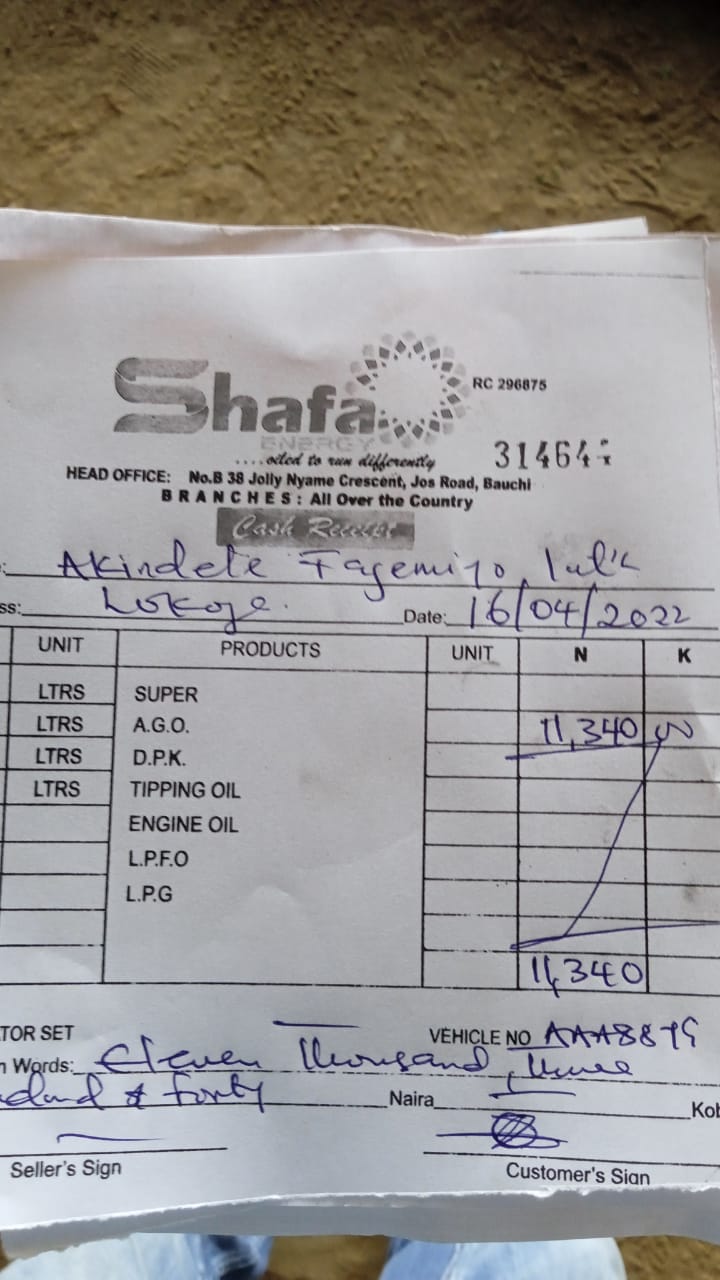 Shafa
ENERGY
RC 296875
....oiled to run differently
31464
HEAD OFFICE: No.B 38 Jolly Nyame Crescent, Jos Road, Bauchi
BRANCHES: All Over the Country
Cash Receipt
Akindele
ss: Lokoja. Date: 16/04/2022
UNIT PRODUCTS UNIT N K
LTRS SUPER
LTRS A.G.O. 11,340 00
LTRS D.P.K.
LTRS TIPPING OIL
ENGINE OIL
L.P.F.O
L.P.G
11,340
TOR SET VEHICLE NO
n Words: Eleven Thousand, three
& forty Naira Kob
Seller's Sign Customer's Sign